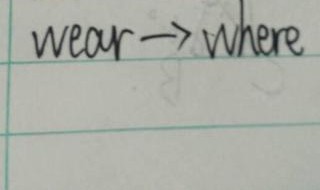 wear → where